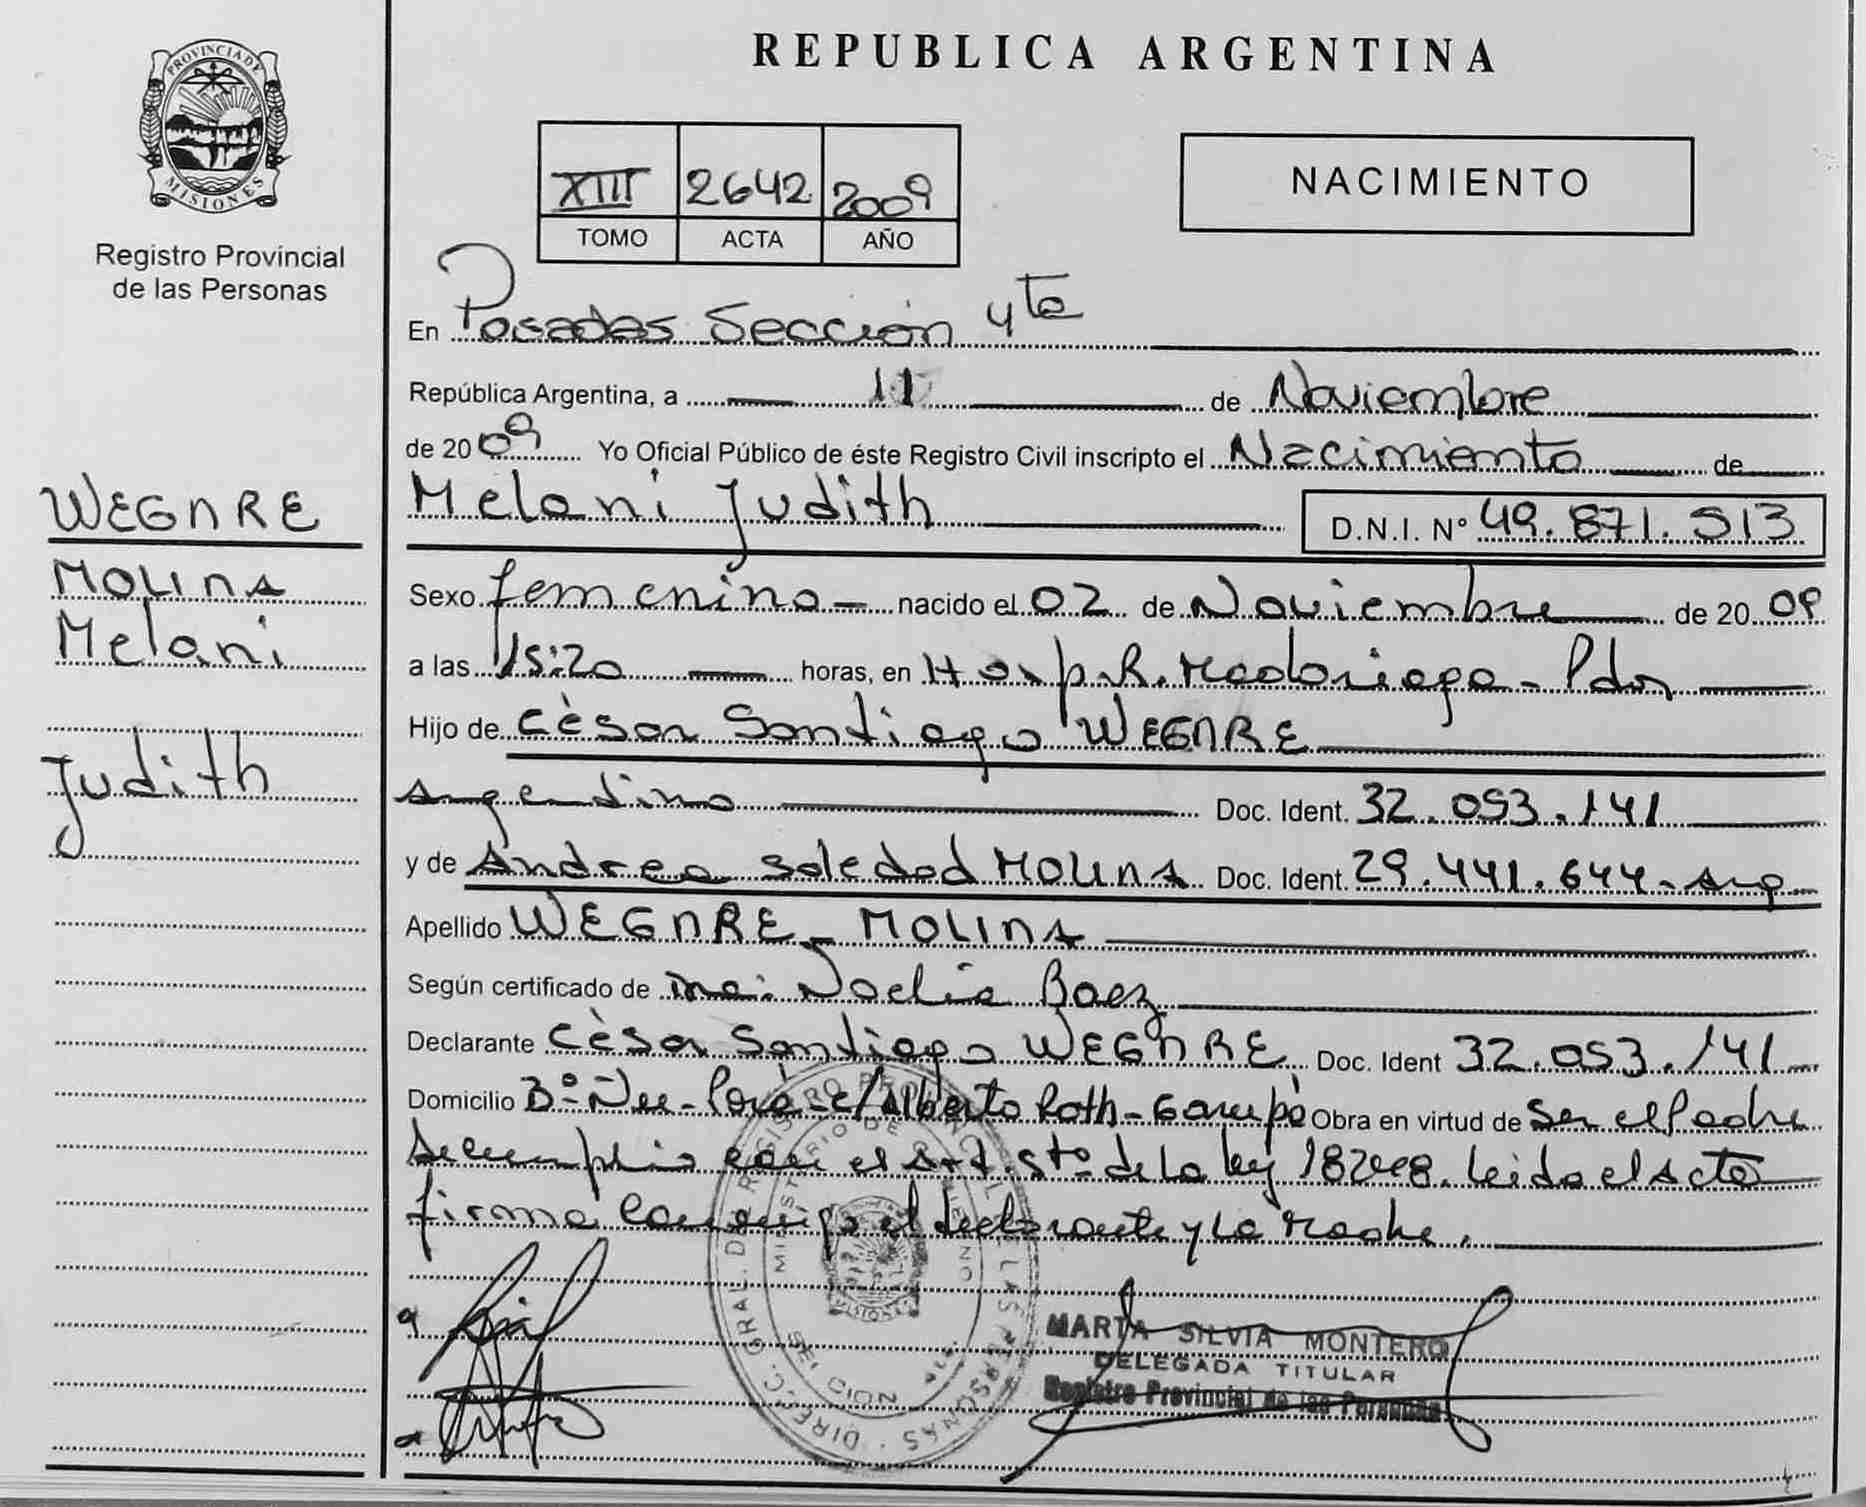 PROVINCIA DE
MISIONES
Registro Provincial
de las Personas
WEGNRE
MOLINA
Melani
Judith
REPUBLICA ARGENTINA
XIII 2642 2009
TOMO ACTA AÑO
NACIMIENTO
En Posadas Sección 4ta
República Argentina, a 11 de Noviembre
de 2009 Yo Oficial Público de éste Registro Civil inscripto el Nacimiento de
Melani Judith D.N.I. Nº 49.871.513
Sexo femenino nacido el 02 de Noviembre de 2009
a las 15:20 horas, en Hosp. R. Madariaga - Pdas
Hijo de Cèsar Santiago WEGNRE
Argentino Doc. Ident. 32.053.141
y de Andrea Soledad MOLINA Doc. Ident. 29.441.644 - Arg
Apellido WEGNRE - MOLINA
Según certificado de Noelia Baez
Declarante Cèsar Santiago WEGNRE Doc. Ident 32.053.141
Domicilio Bº Ñu - Porá - c/ Alberto Roth - Garupá Obra en virtud de Ser el Padre
Se cumplio con el Art. 5to de la ley 18248. leida el Acta
firma conmigo el declarante y la Madre.
DIRECC. GRAL. DE REGISTRO PROVINCIAL DE LAS PERSONAS
MINISTERIO DE GOBIERNO
MISIONES
MARTA SILVIA MONTERO
DELEGADA TITULAR
Registro Provincial de las Personas